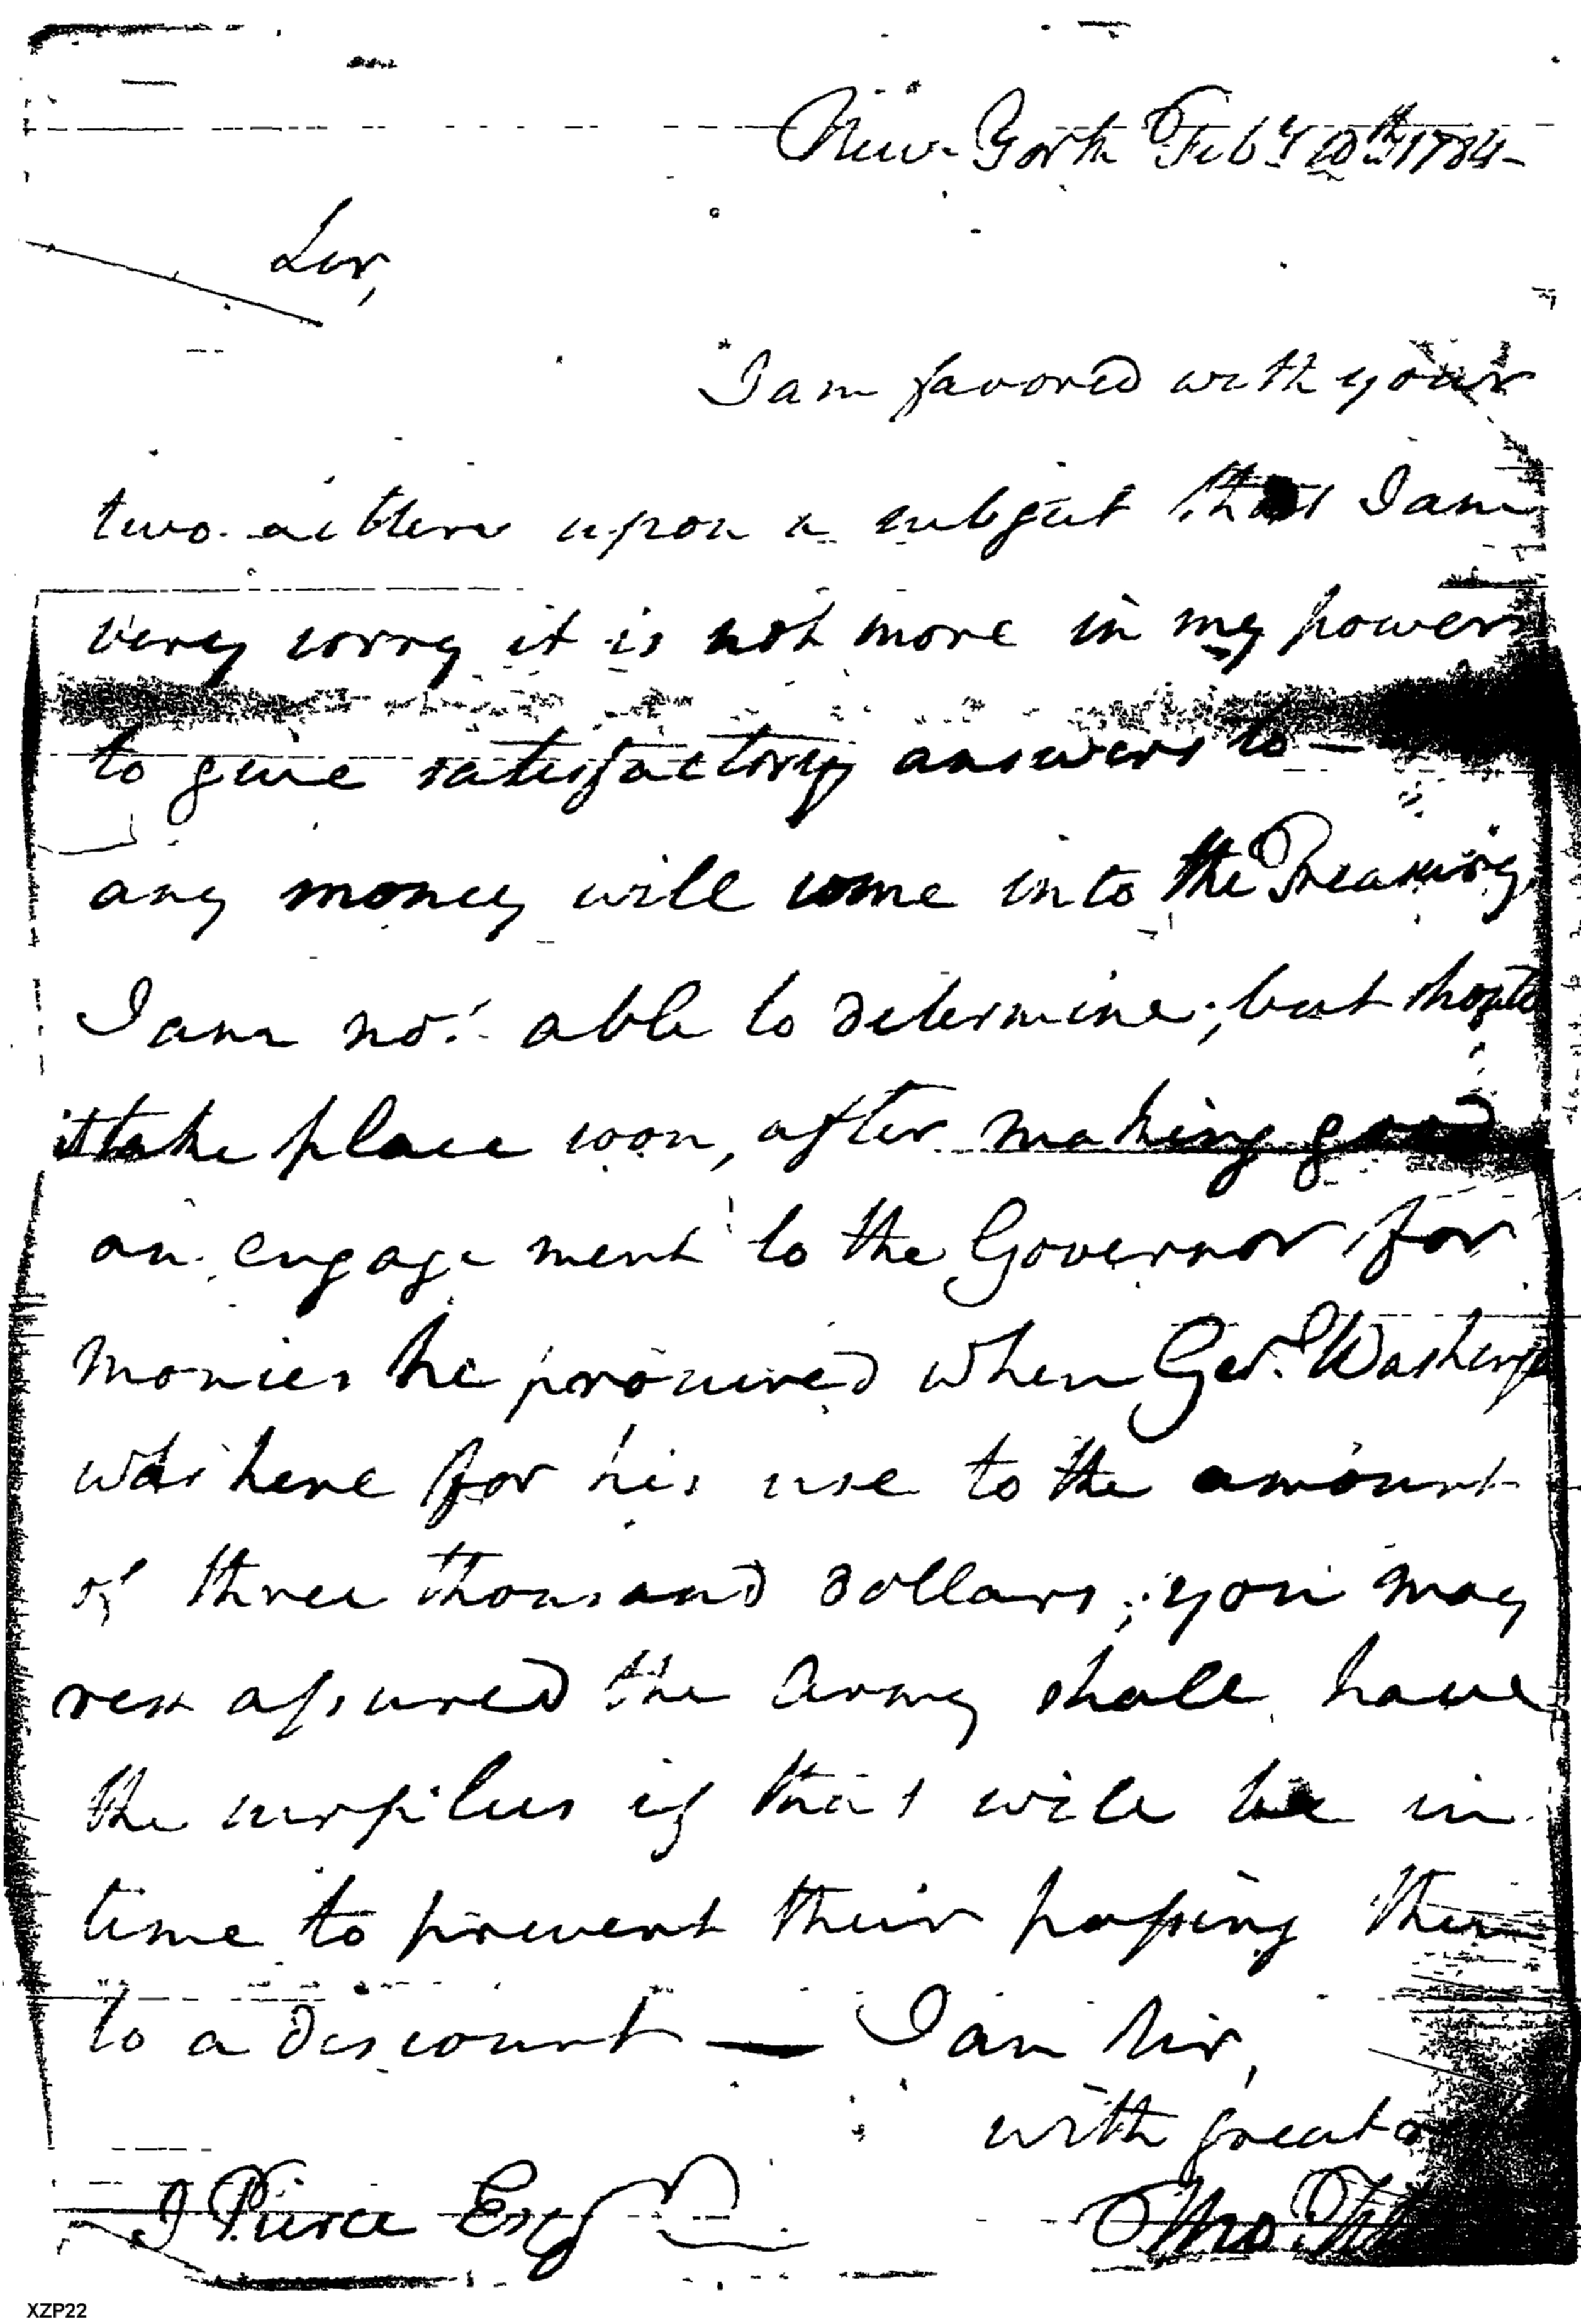 New-York Feby 10th 1784-
Sir,
I am favored with your
two letters upon a subject that I am
very sorry it is not more in my power
to give satisfactory answers to —
any money will come into the Treasury
I am not able to determine; but hope to
it take place soon, after making good
an engagement to the Governor for
monies he procured when Genl. Washing
was here for his use to the amount
of three thousand dollars; you may
rest assured the Army shall have
the surplus if that will be in
time to prevent their passing them
to a discount — I am Sir,
with great
J Pierce Esqr
Tho
XZP22